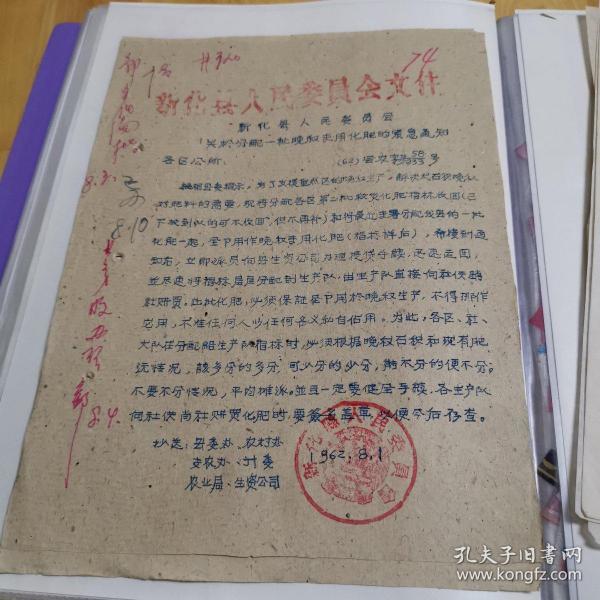 74
新化县人民委员会文件
新化县人民委员会
关於分配一批晚秋专用化肥的紧急通知
各区公所：
(62)会农字第 号
根据县委指示，为了支援重点区的晚秋生产，解决大面积晚秋
对肥料的需要，现将分配各区第二批救灾化肥指标收回(已
下放到队的可不收回，但不再补)和将最近专署分配我县的一批
化肥一起，全下用作晚秋专用化肥(指标详后)，希接到通
知后，立即派员向县生资公司办理提货手续，迅速运回，
并尽速将指标层层分配到生产队，由生产队直接向社供销
社研买。此批化肥，必须保证全下用於晚秋生产，不得挪作
它用，不准任何人以任何名义私自佔用。为此，各区、社、
大队在分配给生产队指标时，必须根据晚秋面积和现有肥
沅情况，该多分的多分，可少分的少分，能不分的便不分。
不要不分情况，平均摊派。并且一定要健全手续，各生产队
向社供尚社研买化肥时，要签名盖章，以便今后存查。
抄送：县委办、农村办
支农办、计委
农业局、生资公司
1962.8.1
新化县人民委员会
8.3.
8.10
8.4.
孔夫子旧书网
www.kongfz.com